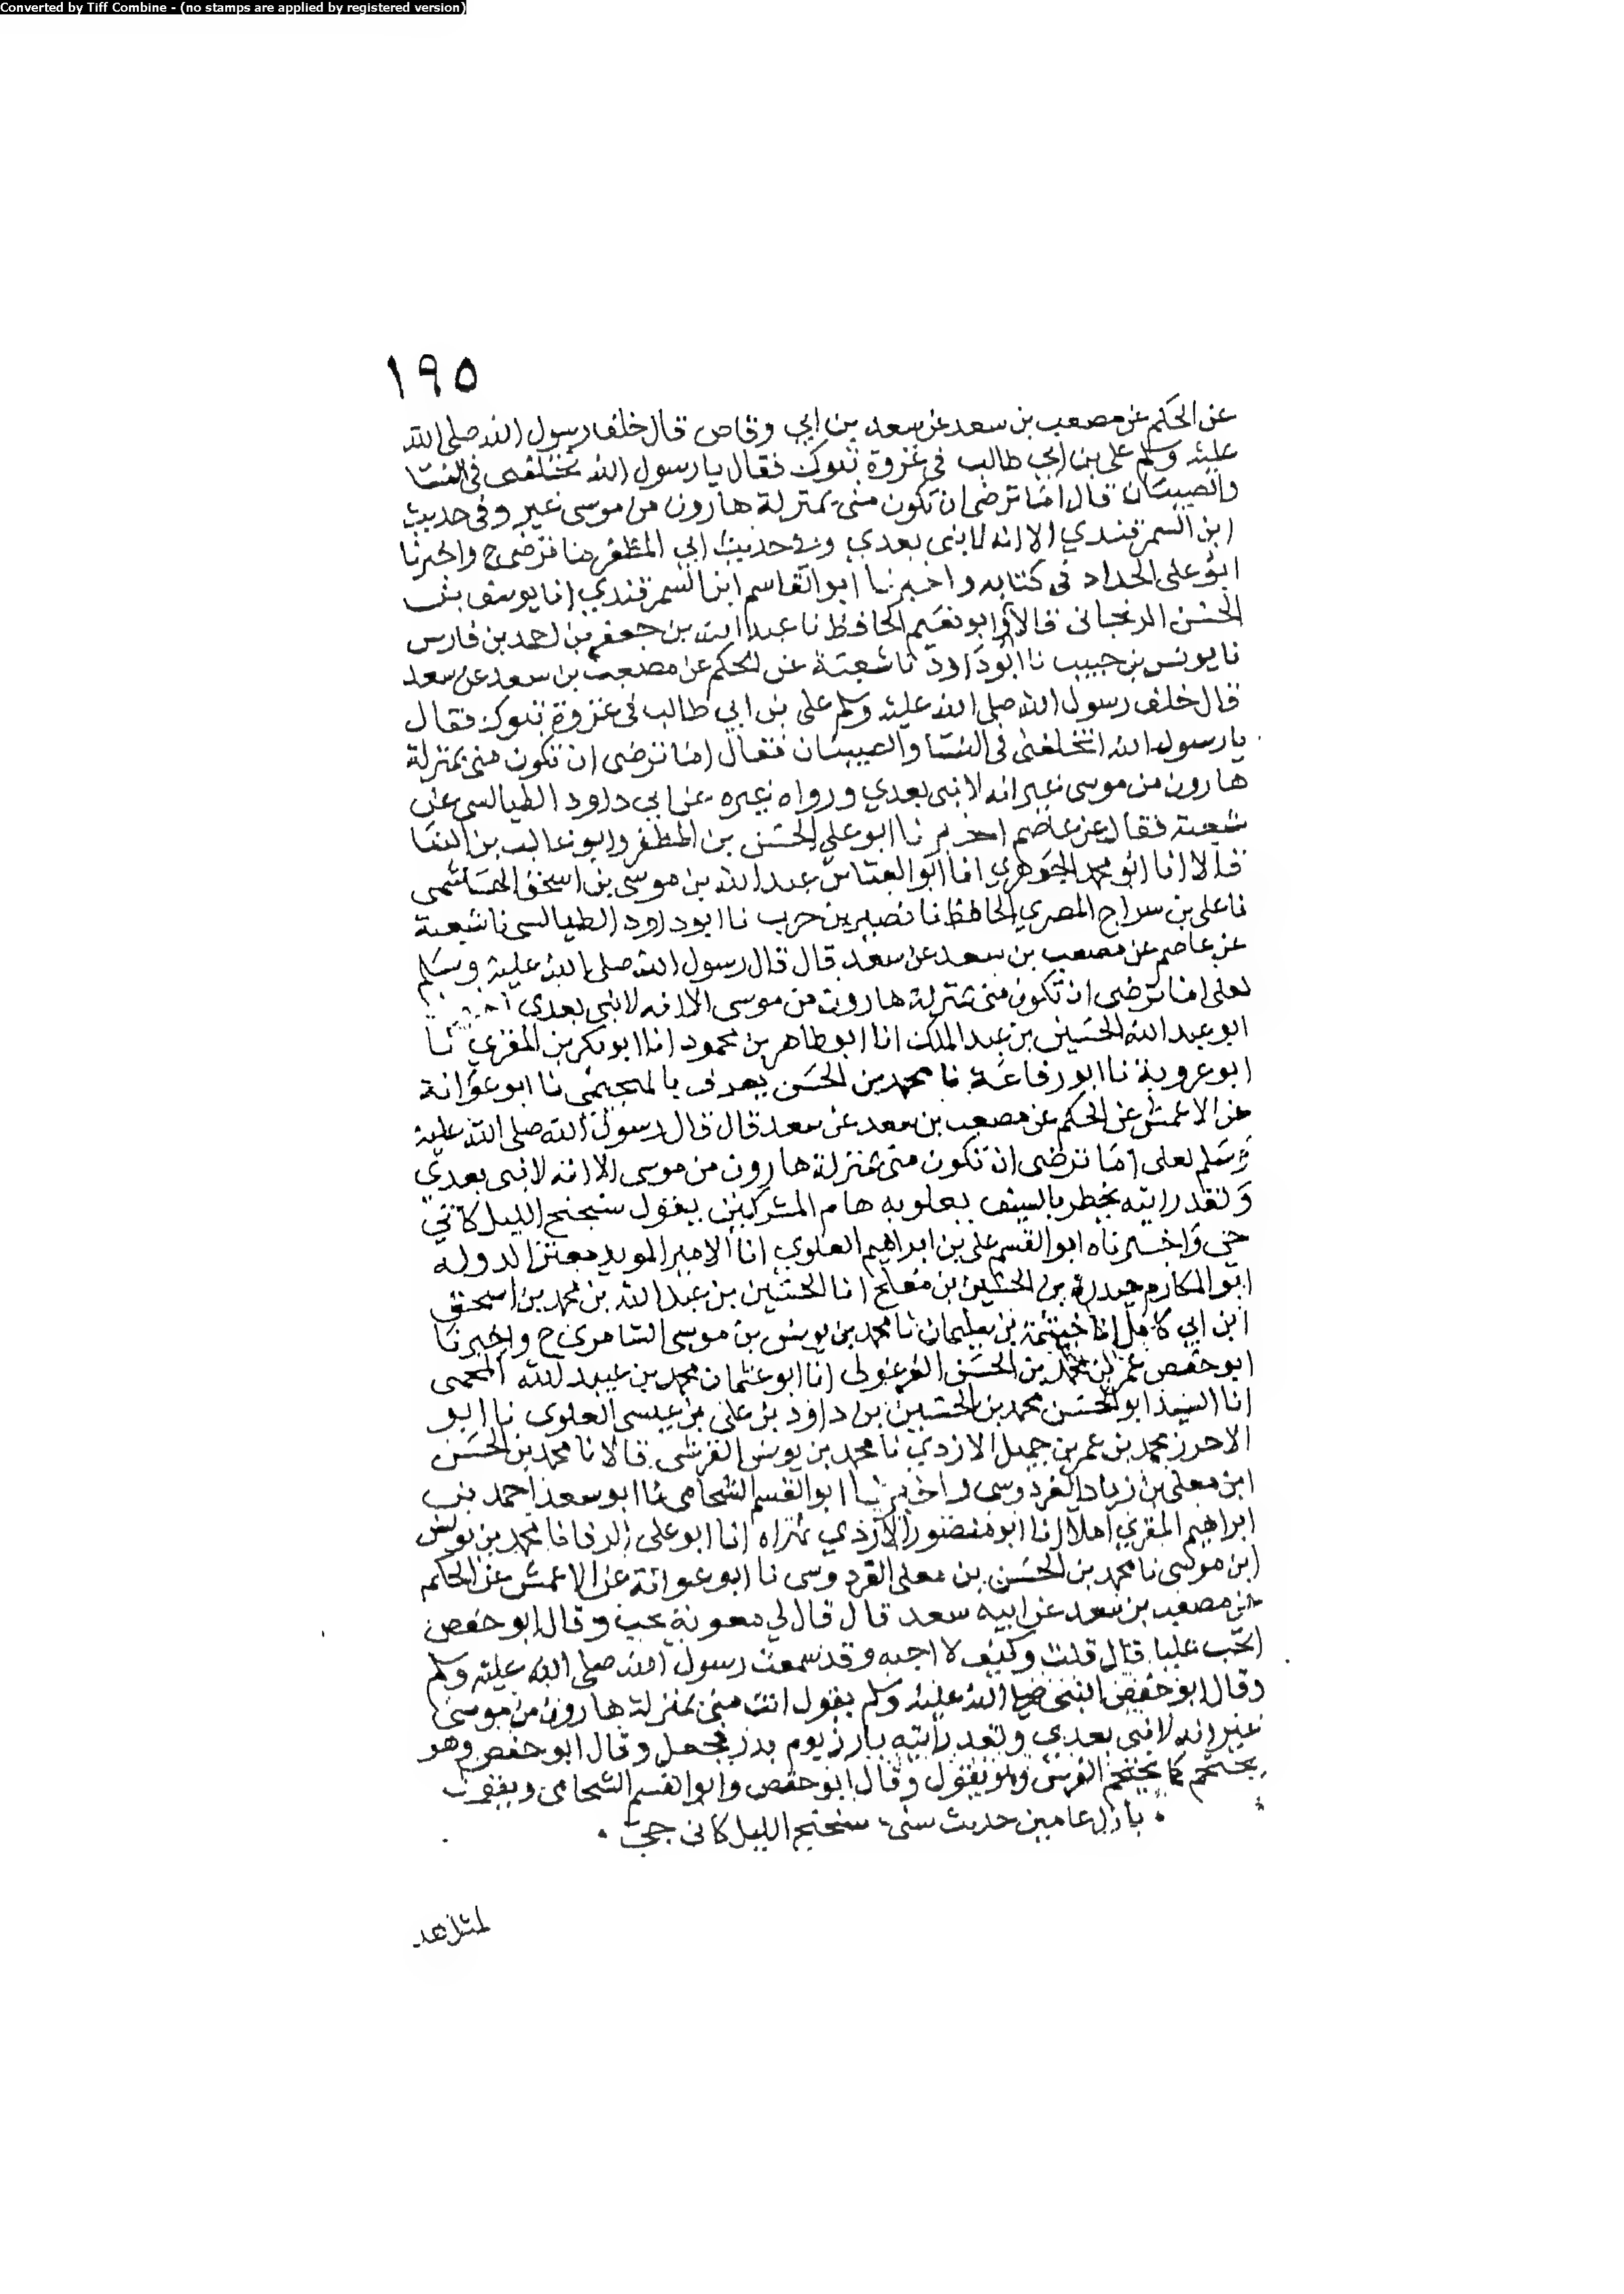 Converted by Tiff Combine - (no stamps are applied by registered version)
١٩٥
عن الحكم عن مصعب بن سعد عن سعد بن ابي وقاص قال خلف رسول الله صلى الله
عليه وسلم على بن ابي طالب في غزوة تبوك فقال يا رسول الله تخلفنى فى النسا
والصبيان قال اما ترضى ان تكون منى بمنزلة هارون من موسى غير وفى حديث
ابن السمرقندي الا انه لا نبى بعدي وفى حديث ابي المظفر منا ترضى ح واخبرنا
ابو على الحداد فى كتابه واخبرنا ابو القاسم ابن السمرقندي انا يوسف بن
الحسن الزنجانى قالا انا ابو نعيم الحافظ نا عبد الله بن جعفر بن احمد بن فارس
نا يونس بن حبيب نا ابو داود نا شعبة عن الحكم عن مصعب بن سعد عن سعد
قال خلف رسول الله صلى الله عليه وسلم على بن ابي طالب فى غزوة تبوك فقال
يا رسول الله اتخلفنى فى النسا والصبيان فقال اما ترضى ان تكون منى بمنزلة
هارون من موسى غير انه لا نبى بعدي ورواه غيره عن ابي داود الطيالسى عن
شعبة فقال عن عاصم اخبرنا ابو على الحسن بن المظفر وابو غالب بن البنا
قالا انا ابو محمد الجوهري انا ابو العباس عبد الله بن موسى بن اسحق الهاشمى
نا على بن سراج المصري الحافظ نا نصير بن حرب نا ابو داود الطيالسى نا شعبة
عن عاصم عن مصعب بن سعد عن سعد قال قال رسول الله صلى الله عليه وسلم
لعلى اما ترضى ان تكون منى بمنزلة هارون من موسى الا انه لا نبى بعدي
ابو عبد الله الحسين بن عبد الملك انا ابو طاهر بن محمود انا ابو بكر بن المقري نا
ابو عروبة نا ابو رفاعة نا محمد بن الحسن يعرف نا ابو عوانة
عن الاعمش عن الحكم عن مصعب بن سعد عن سعد قال قال رسول الله صلى الله عليه
وسلم لعلى اما ترضى ان تكون منى بمنزلة هارون من موسى الا انه لا نبى بعدي
ولقد رايته يخطر بالسيف يعلو به هام المشركين يقول سنحنح الليل كاني
جني واخبرناه ابو القسم على بن ابراهيم العلوي انا الامير المويد معتز الدولة
ابو المكارم حيدرة بن الحسين بن مفلح انا الحسين بن عبد الله بن محمد بن اسحق
ابن ابي كامل انا خيثمة بن سليمان نا محمد بن يونس بن موسى السامرى ح واخبرنا
ابو حفص عمر بن محمد بن الحسن الفرغولى انا ابو عثمان محمد بن عبيد الله المحمى
انا السيد ابو الحسن محمد بن الحسين بن داود بن على بن عيسى العلوى نا ابو
الاحرز محمد بن عمر بن جميل الازدي نا محمد بن يونس القرشى قالا نا محمد بن الحسن
ابن معلى بن زياد القردوسى واخبرنا ابو القسم الشحامى نا ابو سعد احمد بن
ابراهيم المقري املا انا ابو منصور الازدي بهراه انا ابو على الرفا نا محمد بن يونس
ابن موسى نا محمد بن الحسن بن معلى القردوسى نا ابو عوانة عن الاعمش عن الحكم
عن مصعب بن سعد عن ابيه سعد قال قال لي معوية تحب وقال ابو حفص
اتحب عليا قال قلت وكيف لا احبه وقد سمعت رسول الله صلى الله عليه وسلم
وقال ابو حفص النبى صلى الله عليه وسلم يقول انت منى بمنزلة هارون من موسى
غير انه لا نبى بعدي ولقد رايته بارز يوم بدر فجعل وقال ابو حفص وهو
يحمحم كما يحمحم الفرس وهو يقول وقال ابو حفص وابو القسم الشحامى ويقول
بازل عامين حديث سنى سنحنح الليل كانى جنى
لمثل هد